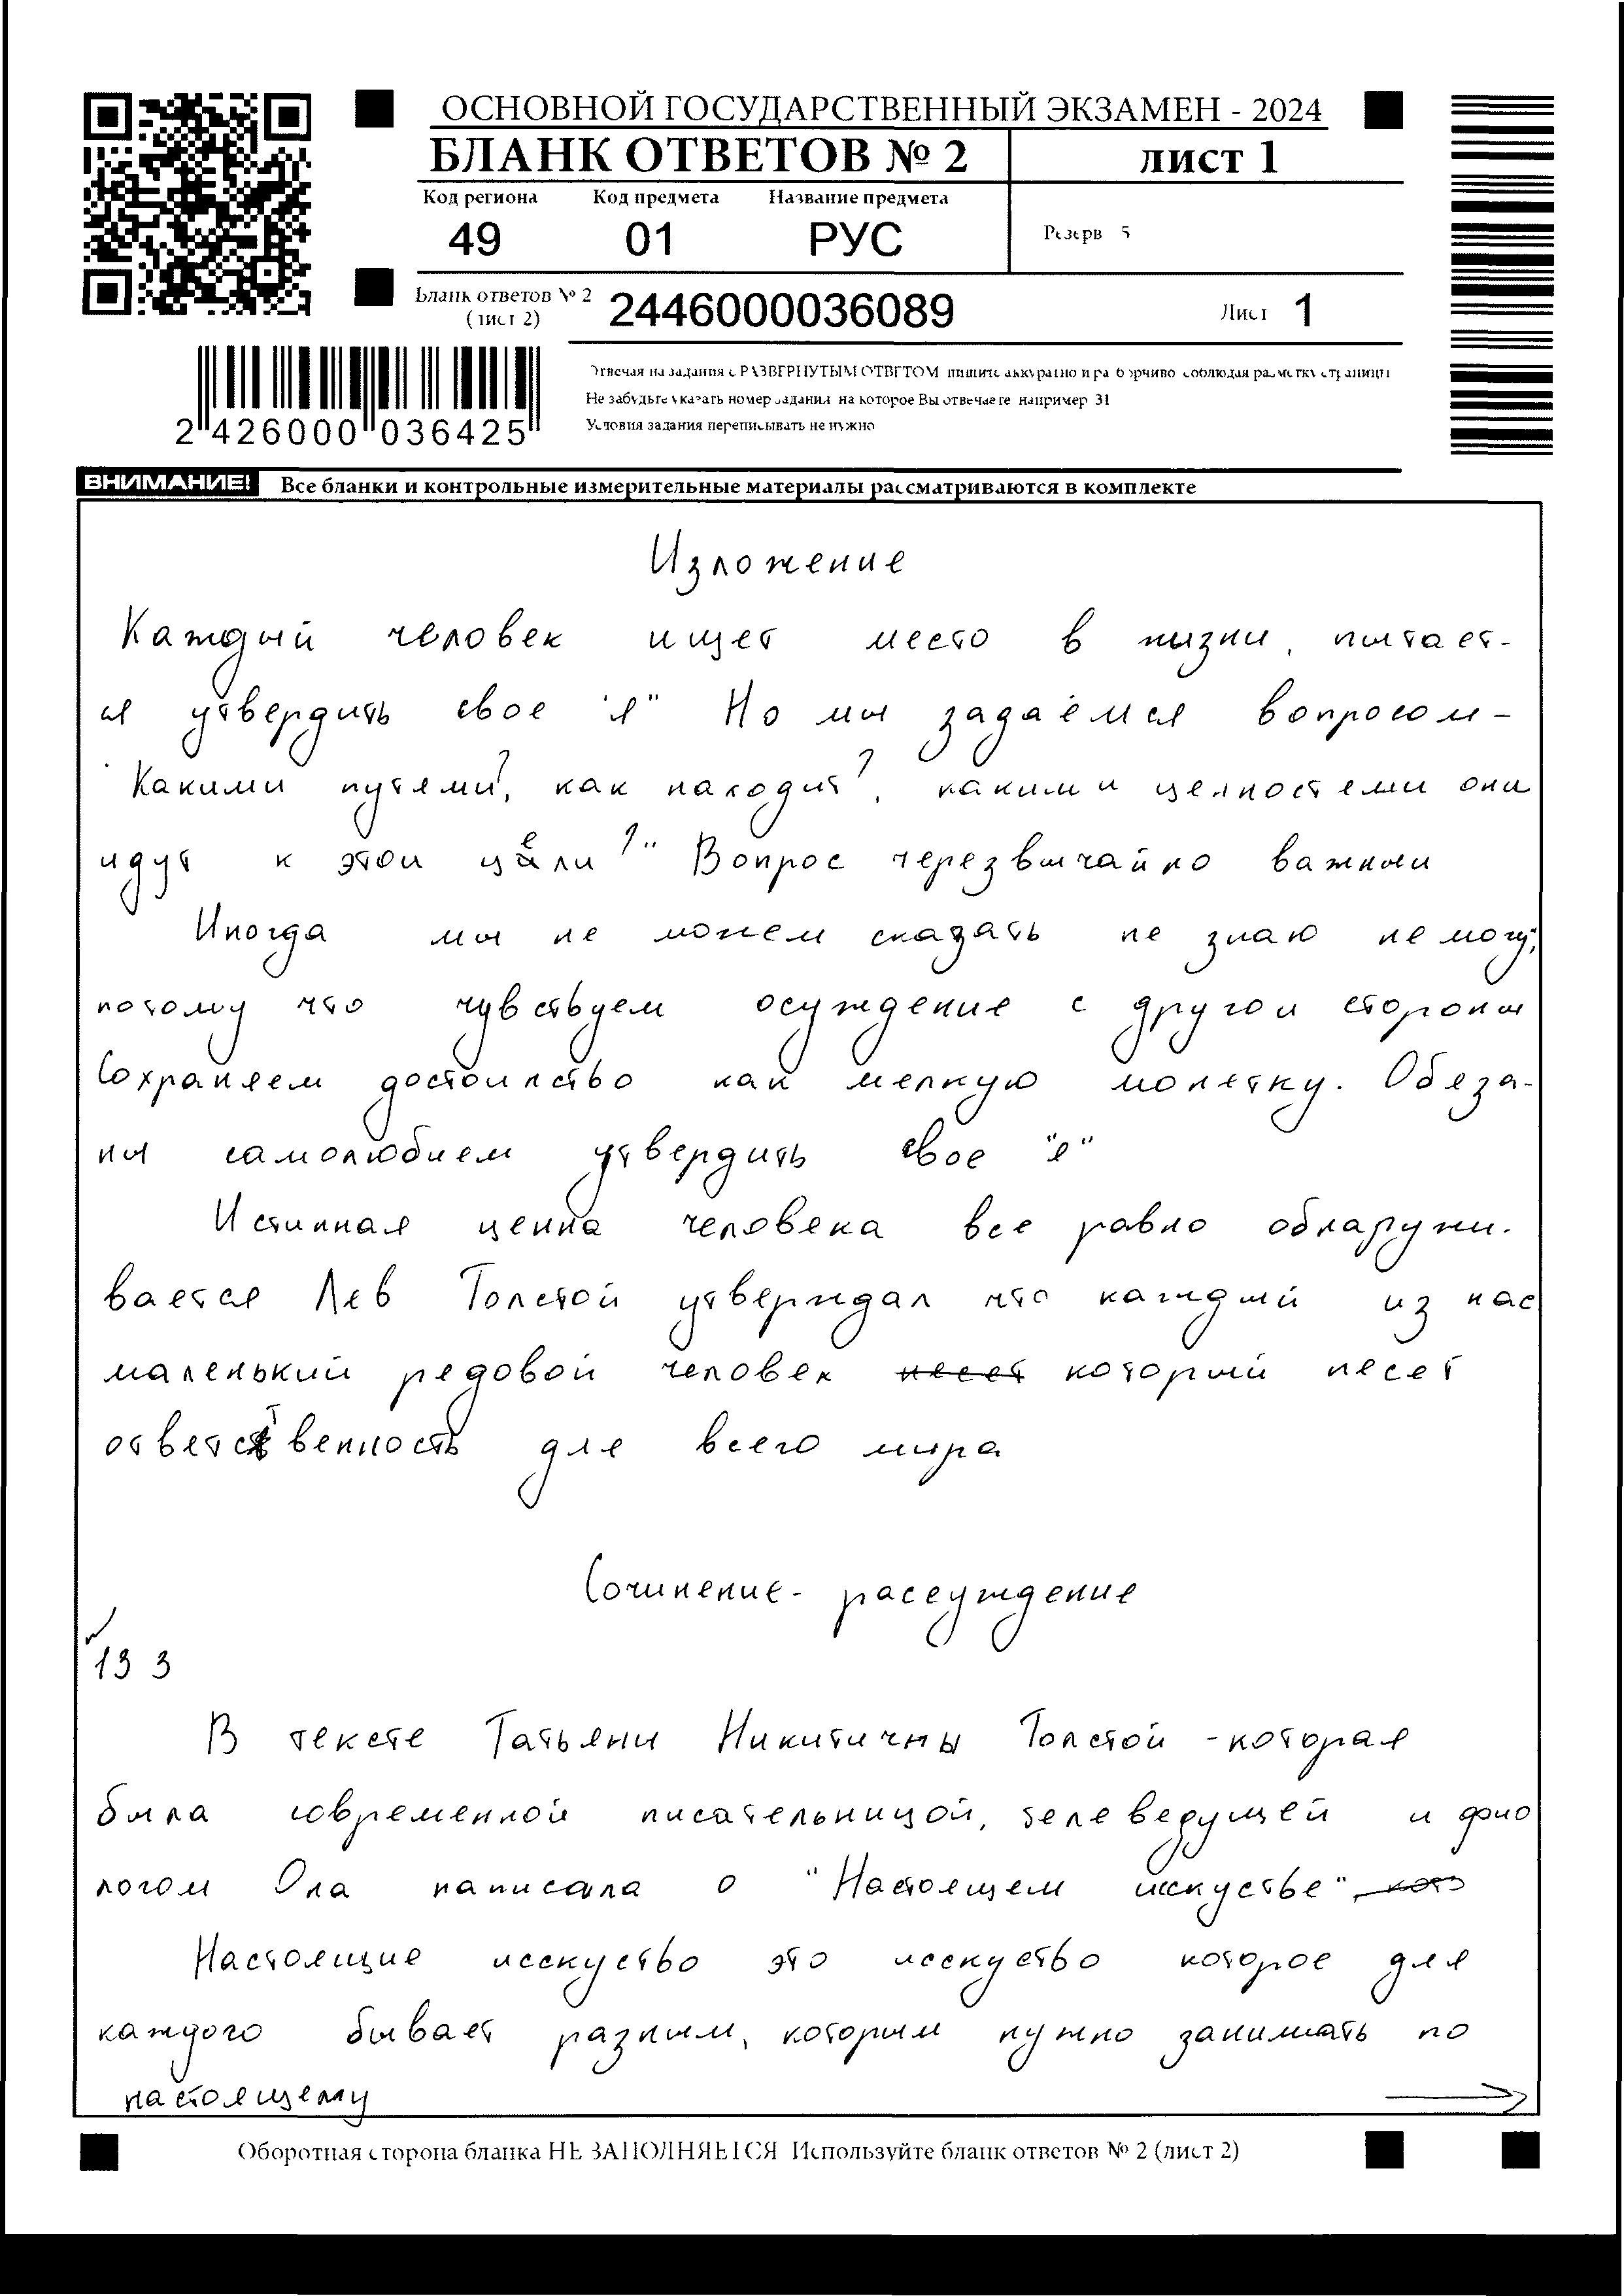 ОСНОВНОЙ ГОСУДАРСТВЕННЫЙ ЭКЗАМЕН - 2024
БЛАНК ОТВЕТОВ № 2 лист 1
Код региона Код предмета Название предмета
49 01 РУС Резерв 5
Бланк ответов № 2 (лист 2) 2446000036089 Лист 1
Отвечая на задания с РАЗВЕРНУТЫМ ОТВЕТОМ пишите аккуратно и разборчиво соблюдая разметку страницы
Не забудьте указать номер задания на которое Вы отвечаете например 31
Условия задания переписывать не нужно
2 426000 036425
ВНИМАНИЕ! Все бланки и контрольные измерительные материалы рассматриваются в комплекте
Изложение
Каждый человек ищет место в жизни, пытает-
ся утвердить свое "я" Но мы задаёмся вопросом -
"Какими путями?, как находит?, какими ценностями они
идут к этой цели?" Вопрос черезвычайно важный
Иногда мы не можем сказать не знаю не могу,
потому что чувствуем осуждение с другой стороны
Сохраняем достоинство как мелкую монетку. Обяза-
ны самолюбием утвердить свое "я"
Истинная ценна человека все равно обнаружи-
вается Лев Толстой утверждал что каждый из нас
маленький рядовой человек несет который несет
ответственность для всего мира
Сочинение- рассуждение
13 3
В тексте Татьяни Никитичны Толстой - которая
была современной писательницой, телеведущей и фио
логом Она написала о "Настоящем исскустве",
Настоящие исскуство это исскуство которое для
каждого бывает разным, которым нужно занимать по
настоящему
Оборотная сторона бланка НЕ ЗАПОЛНЯЕТСЯ Используйте бланк ответов № 2 (лист 2)